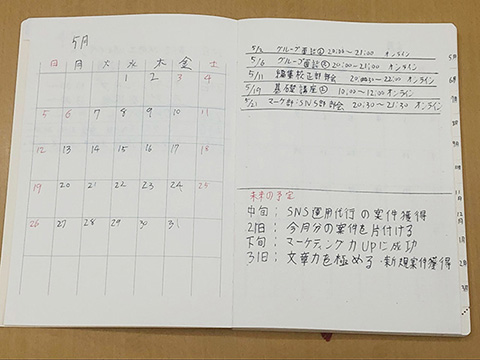 5月
日 月 火 水 木 金 土
1 2 3 4
5 6 7 8 9 10 11
12 13 14 15 16 17 18
19 20 21 22 23 24 25
26 27 28 29 30 31
グループ 20:00〜21:00 オンライン
5/6 グループ 20:00〜21:00 オンライン
5/11 編集校正部部会 〜22:00 オンライン
5/19 基礎講座 10:00〜12:00 オンライン
5/21 マーケ部・SNS部部会 20:30〜21:30 オンライン
未来の予定
中旬: SNS運用代行の案件獲得
21日: 今月分の案件を片付ける
下旬: マーケティング力UPに成功
31日: 文章力を極める・新規案件獲得